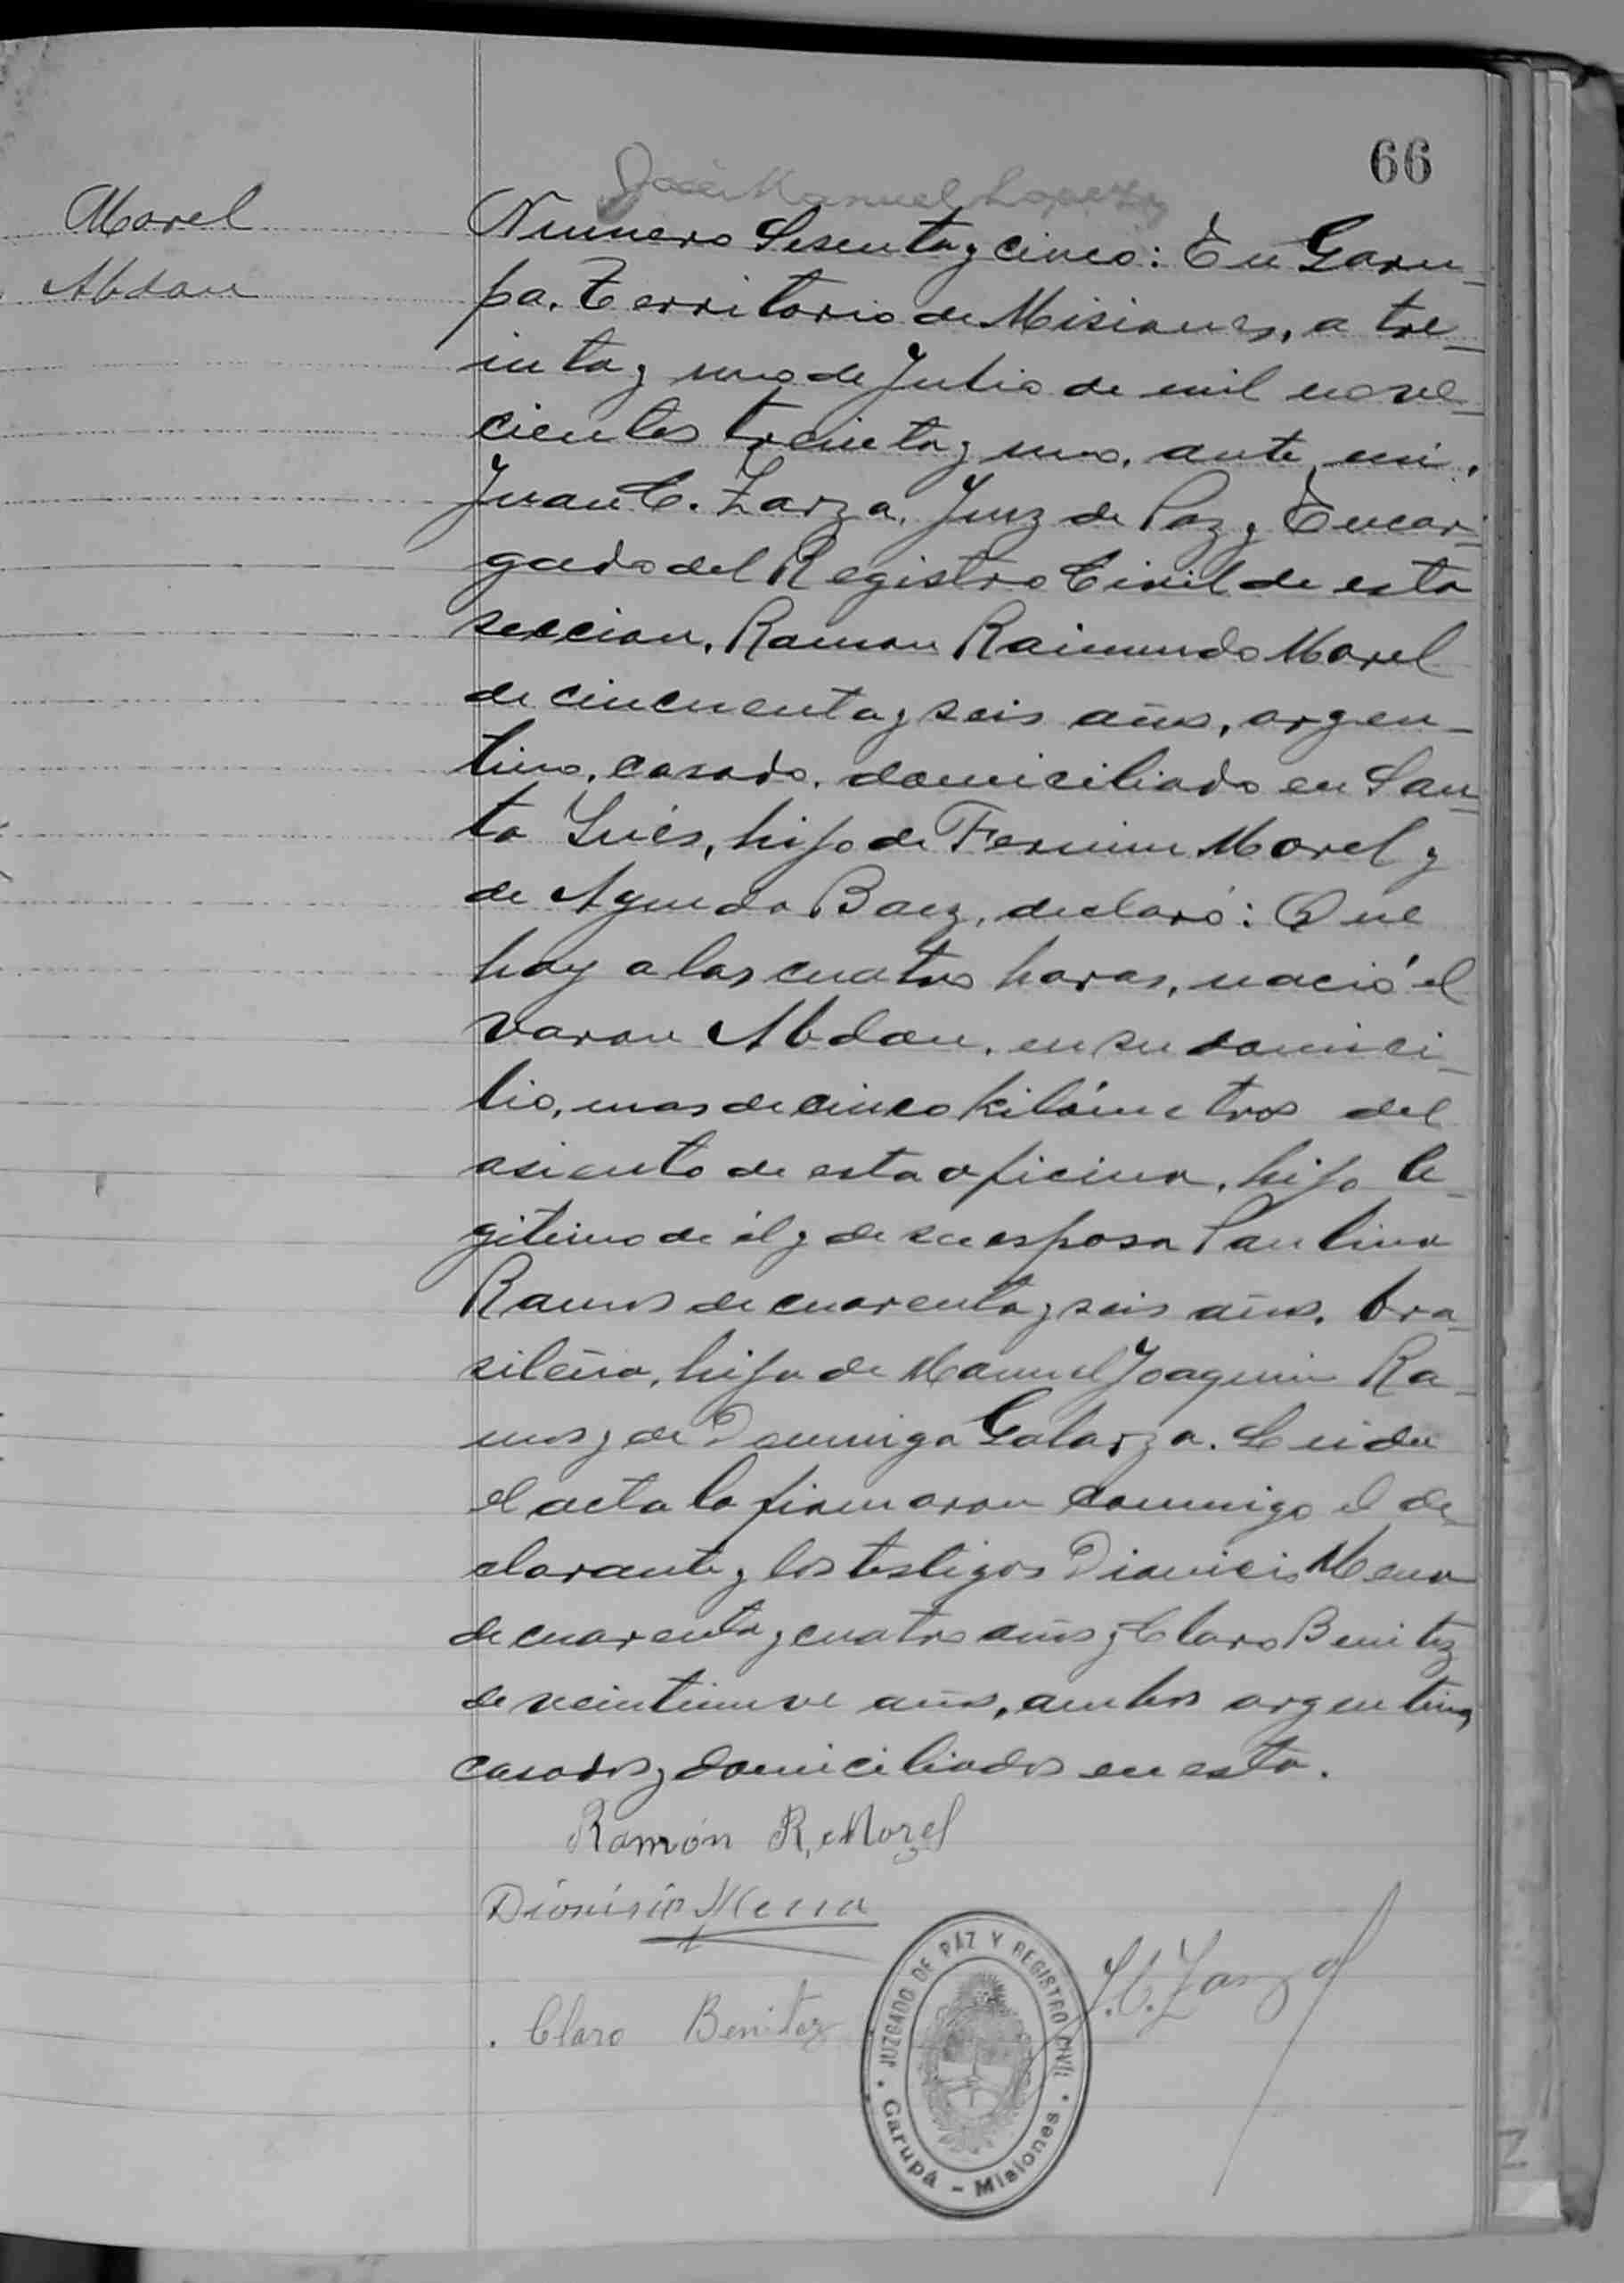 66
José Manuel Lopez
Morel
Abdon
Numero Sesenta y cinco: En Garu-
pa. Territorio de Misiones, a tre-
inta y uno de Julio de mil nove-
cientos treinta y uno, ante mi,
Juan C. Zarza, Juez de Paz y Encar-
gado del Registro Civil de esta
seccion, Ramon Raimundo Morel
de cincuenta y seis años, argen-
tino, casado, domiciliado en San-
ta Inés, hijo de Fermin Morel y
de Agueda Baez, declaró: Que
hoy a las cuatro horas, nació el
varon Abdon, en su domici-
lio, mas de cinco kilómetros del
asiento de esta oficina, hijo le-
gitimo de él y de su esposa Paulina
Ramos de cuarenta y seis años, bra-
sileña, hija de Manuel Joaquin Ra-
mos y de Dominga Galarza. Leida
el acta la firmaron conmigo el de-
clarante y los testigos Dionicio Mena
de cuarenta y cuatro años y Claro Benitez
de veintinueve años, ambos argentinos,
casados y domiciliados en esta.
Ramón R. Morel
Dionisio Mena
J. C. Zarza
Claro Benitez
JUZGADO DE PAZ Y REGISTRO CIVIL
Garupá - Misiones